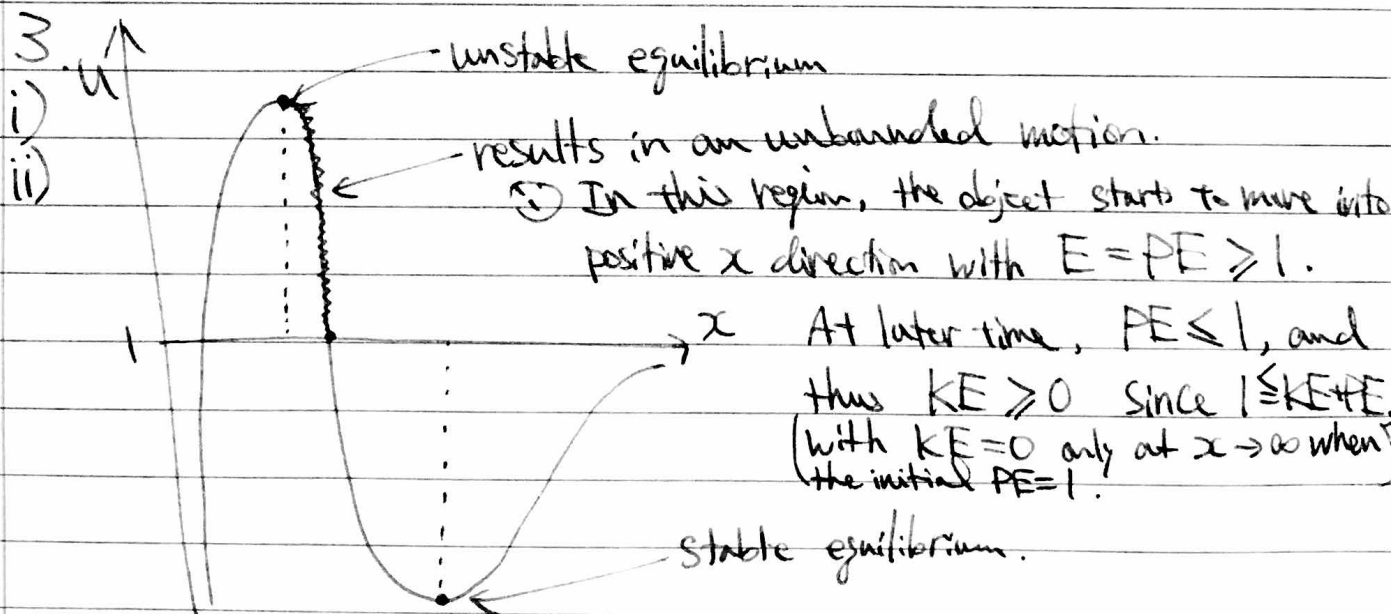 3.
i)
ii)
U
unstable equilibrium
results in an unbounded motion.
∵ In this region, the object starts to move into
positive x direction with E = PE ⩾ 1.
1
x
At later time, PE ≤ 1, and
thus KE ⩾ 0 since 1 ≦ KE+PE.
(with KE=0 only at x → ∞ when
the initial PE=1.)
stable equilibrium.